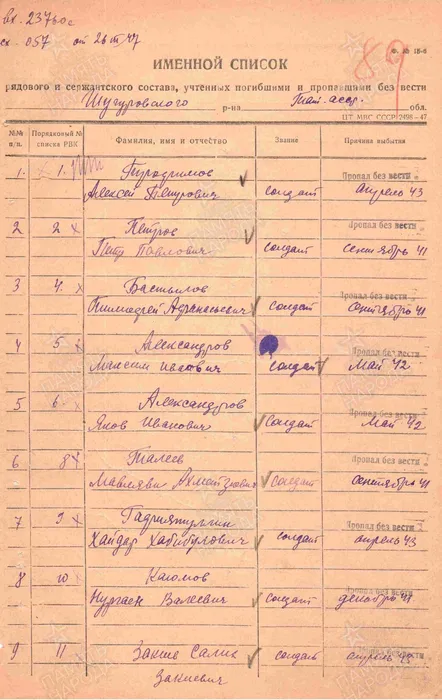 вх. 23760с
от 26 III 47
89
Ф. № 18-б
ИМЕННОЙ СПИСОК
рядового и сержантского состава, учтенных погибшими и пропавшими без вести
Шугуровского р-на Тат. асср. обл.
ЦТ. МВС СССР 2498—47
№№ п/п. Порядковый № списка РВК Фамилия, имя и отчество Звание Причина выбытия
1. 1. Пропал без вести
Алексей Петрович солдат апрель 43
2 2 Петров Пропал без вести
Петр Павлович солдат сентябрь 41
3 4. Пропал без вести
Афанасьевич солдат сентябрь 41
4 5 Александров Пропал без вести
Максим Иванович солдат Май 42
5 6 Александров Пропал без вести
Яков Иванович солдат Май 42
6 8 Галеев Пропал без вести
Ахметзиевич солдат сентябрь 41
7 9 Пропал без вести
Хайдар Хабибулович солдат апрель 43
8 10 Каюмов Пропал без вести
Валеевич солдат декабрь 41
9 11 Закиев Салих Пропал без вести
Закиевич солдат апрель 43